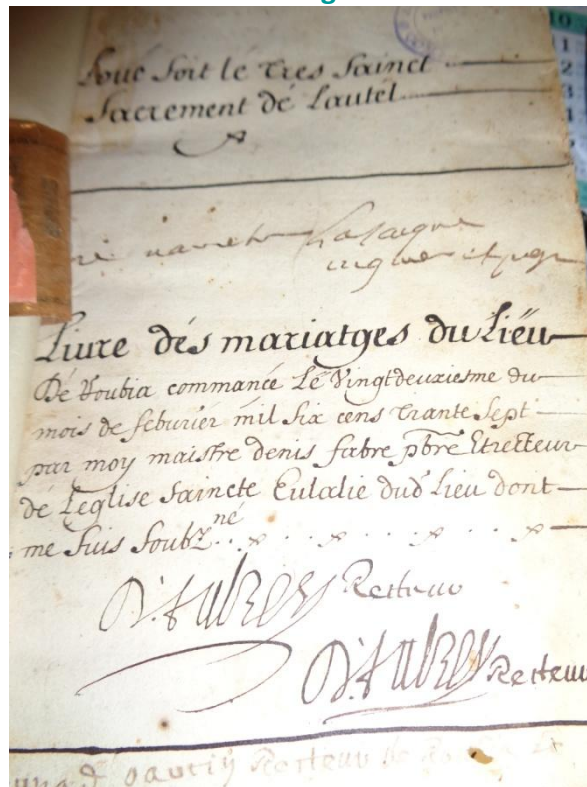 Loué soit le tres sainct
Sacrement de Lautel
Liure dés mariatges du Liëu
De Roubia commancé Le Vingtdeuxiesme du
mois de feburier mil six cens trante sept
par moy maistre denis fabre pbre Et recteur
de Leglise saincte Eulalie dud Lieu dont
me suis soubzné
Recteur
Recteur
Recteur